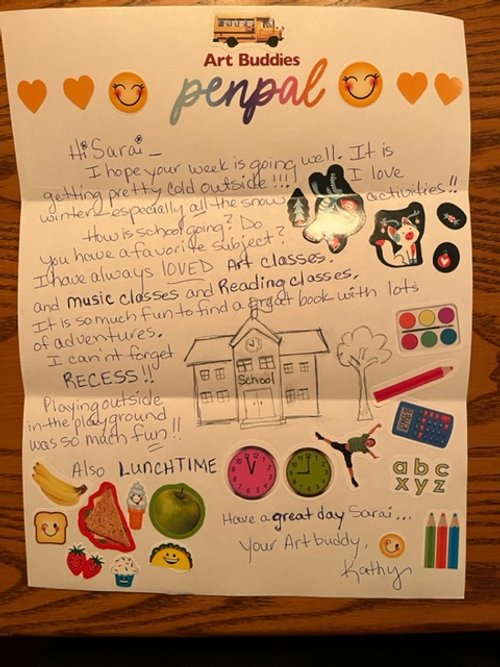 Art Buddies
penpal
Hi Sarai –
I hope your week is going well. It is
getting pretty cold outside!!! I love
winter – especially all the snow activities!!
How is school going? Do
you have a favorite subject?
I have always LOVED Art classes.
and music classes and Reading classes.
It is so much fun to find a great book with lots
of adventures.
I can'nt forget
RECESS!!
School
Playing outside
in the playground
was so much fun!!
Also LUNCHTIME
abc
xyz
Have a great day Sarai...
Your Art buddy,
Kathy